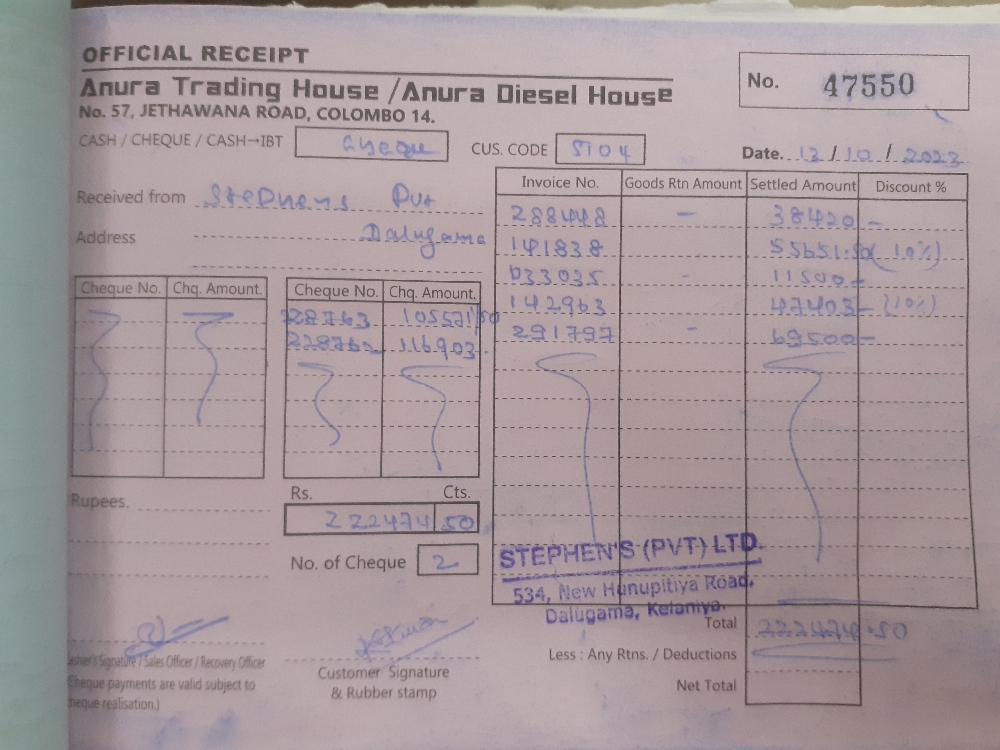 OFFICIAL RECEIPT
Anura Trading House /Anura Diesel House
No. 57, JETHAWANA ROAD, COLOMBO 14.
No. 47550
CASH / CHEQUE / CASH→IBT cheque CUS. CODE ST04 Date. 12/10/2023
Received from Stephens Pvt
Address Dalugama
Invoice No. Goods Rtn Amount Settled Amount Discount %
288448 – 38420 –
141838 55651.50 (10%)
033035 - 11500 –
142963 47403 – (10%)
291797 – 69500 –
Cheque No. Chq. Amount. Cheque No. Chq. Amount.
228763 105571/50
228762 116903.
Rupees. Rs. Cts.
222474 50
No. of Cheque 2
STEPHEN'S (PVT) LTD.
534, New Hunupitiya Road,
Dalugama, Kelaniya.
Total 222474.50
Less : Any Rtns. / Deductions
Net Total
asher's Signature / Sales Officer / Recovery Officer
Cheque payments are valid subject to
heque realisation.)
Customer Signature
& Rubber stamp